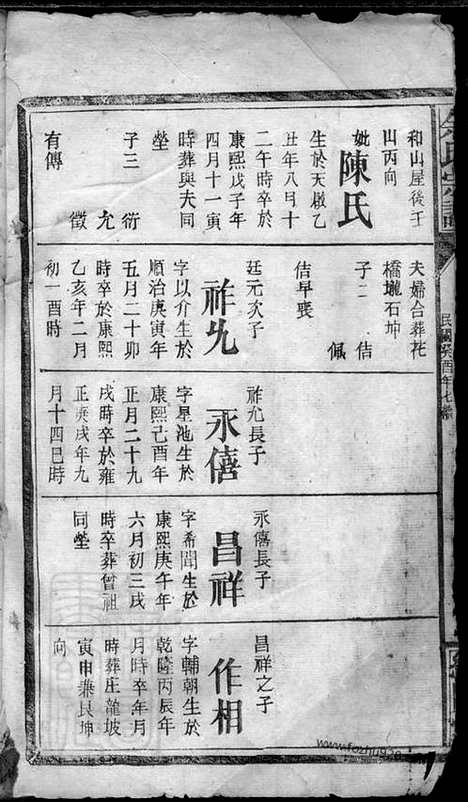 和山屋後壬
山丙向
妣陳氏
生於天啟乙
丑年八月十
二午時卒於
康熙戊子年
四月十一寅
時葬與夫同
塋
子三 衍
允
徵
有傳
夫婦合葬花
橋壠石坤
子二 佶
佩
佶早喪
廷元次子
祚允
字以介生於
順治庚寅年
五月二十卯
時卒於康熙
乙亥年二月
初一酉時
祚允長子
永僖
字星池生於
康熙己酉年
正月二十九
戌時卒於雍
正庚戌年九
月十四巳時
永僖長子
昌祥
字希聞生於
康熙庚午年
六月初三戌
時卒葬曾祖
同塋
昌祥之子
作相
字輔朝生於
乾隆丙辰年
月時卒年月
時葬庄龍坡
寅申兼艮坤
向
氏宗譜
民國癸酉年七續
www.fozhu920.com